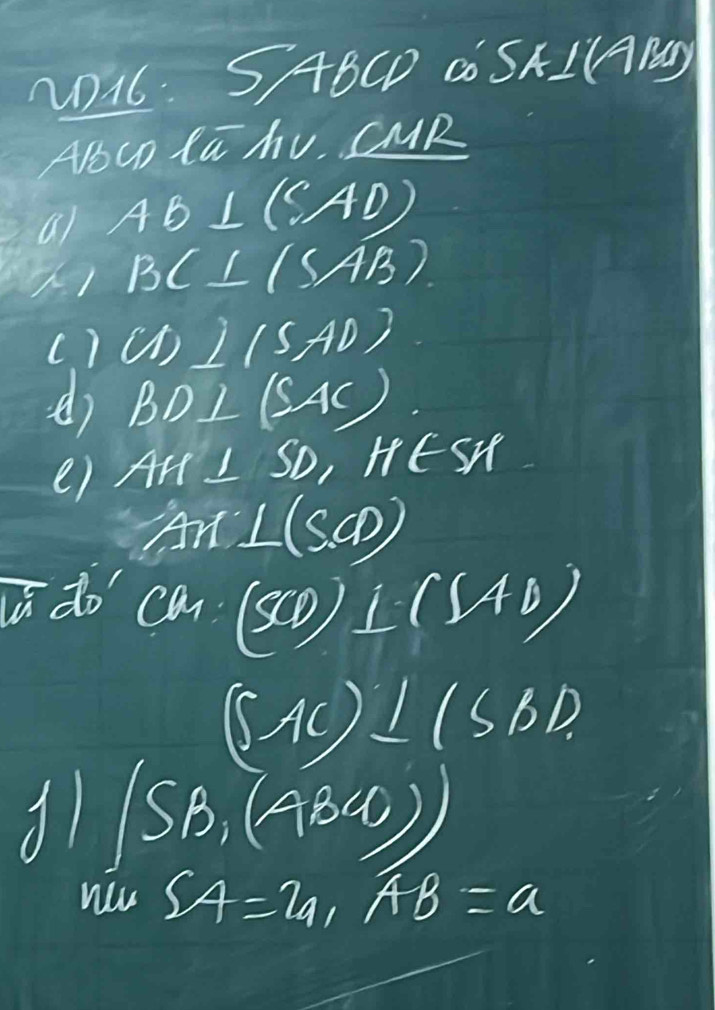 VD16: SABCD có SA⊥(ABCD)
ABCD là hv. CMR
a) AB ⊥ (SAD)
b) BC ⊥ (SAB).
c) CD ⊥ (SAD).
d) BD ⊥ (SAC).
e) AH ⊥ SD, H ∈ SH
AH ⊥ (SCD)
Từ đó cm: (SCD) ⊥ (SAD)
(SAC) ⊥ (SBD.
f) (SB, (ABCD))
nếu SA = 2a, AB = a